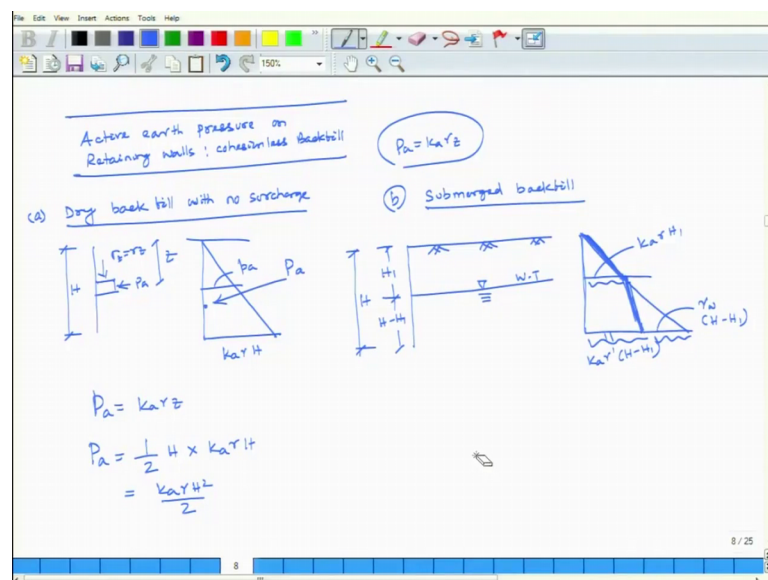 File Edit View Insert Actions Tools Help
B I
150%
Active earth pressure on
Retaining walls : cohesionless Backfill
Pa = kaγz
(a) Dry back fill with no surcharge
(b) Submerged backfill
H
σz=γz
z
Pa
pa
Pa
kaγH
H
H1
H-H1
W.T
kaγH1
γw
(H-H1)
kaγ'(H-H1)
Pa = kaγz
Pa = 1/2 H × kaγH
= kaγH²/2
8 / 25
8